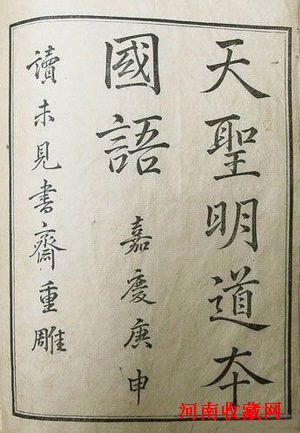 天聖明道夲
國語 嘉慶庚申
讀未見書齋重雕
河南收藏网